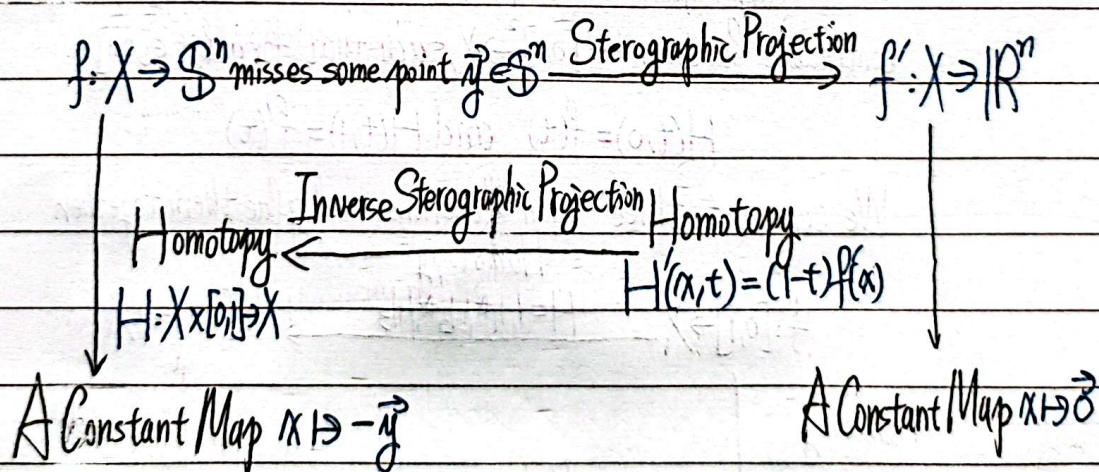 f: X → 𝕊ⁿ misses some point y⃗ ∈ 𝕊ⁿ Sterographic Projection f′: X → ℝⁿ
Inverse Sterographic Projection
Homotopy Homotopy
H: X×[0,1]→X H′(x,t)=(1-t)f′(x)
A Constant Map x ↦ -y⃗ A Constant Map x ↦ 0⃗